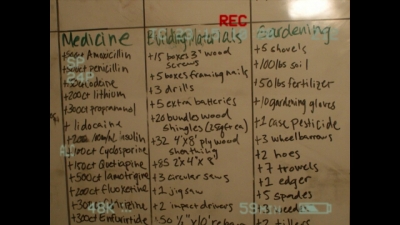 REC
Medicine
Amoxicillin
penicillin
codeine
+200ct lithium
+300ct propranolol
+ lidocaine
insulin
+100ct Cyclosporine
+150ct Quetiapine
+500ct lamotrigine
+200ct Fluoxetine
+300ct Enfuvirtide
Building Materials
+15 boxes 3" wood
screws
+5 boxes framing nails
+3 drills
+5 extra batteries
+20 bundles wood
shingles (25sqft ea)
+32 4'x8' plywood
sheathing
+85 2"x4"x8'
+3 circular saws
+1 jigsaw
+2 impact drivers
+50 1/2"x10' rebar
Gardening
+6 shovels
+100lbs soil
+50lbs fertilizer
+10 gardening gloves
+1 case pesticide
+3 wheelbarrows
+2 hoes
+7 trowels
+1 edger
+5 spades
+2 tillers